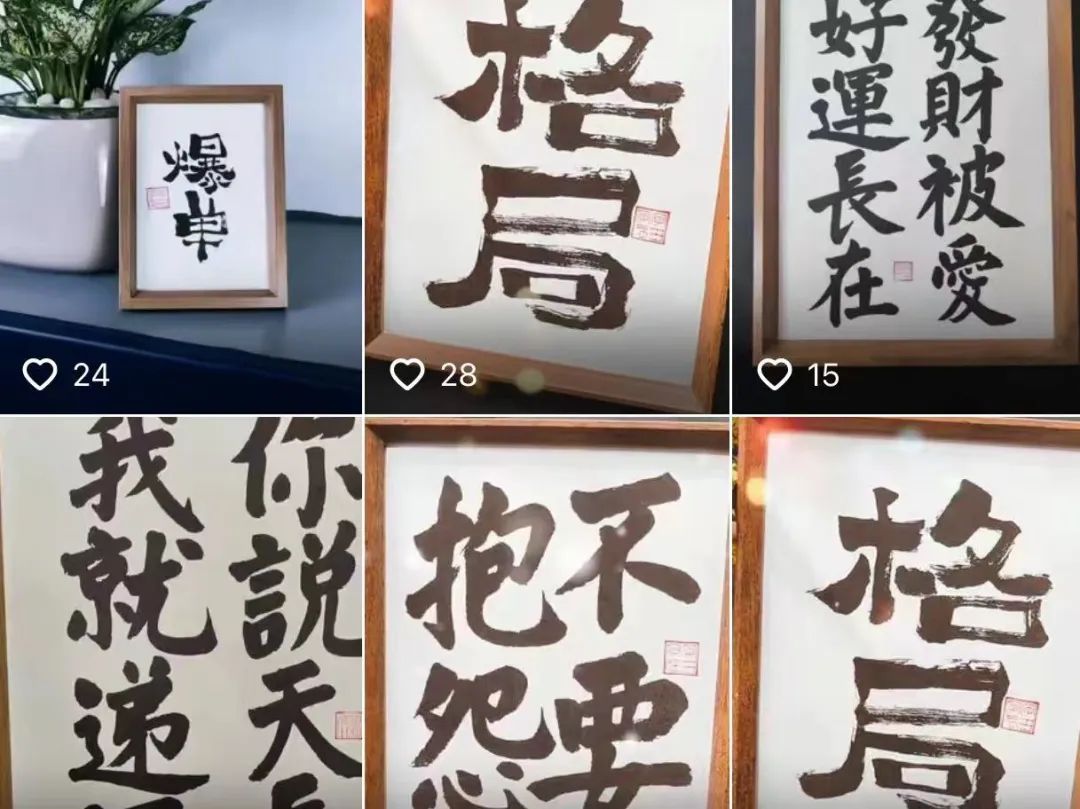 爆单
24
格局
28
發財被愛
好運長在
15
你説天
我就递
不要
抱怨
格局